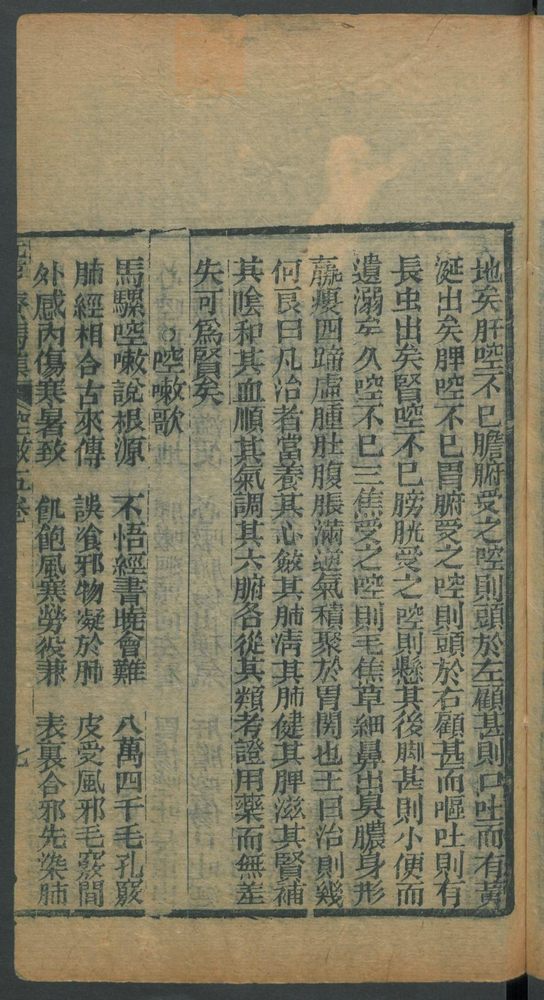 地矣肝啌不已膽腑受之啌則頭於左顧甚則口吐而有黄
涎出矣脾啌不已胃腑受之啌則頭於右顧甚而嘔吐則有
長虫出矣腎啌不已膀胱受之啌則懸其後脚甚則小便而
遺溺矣久啌不已三焦受之啌則毛焦草細鼻出臭膿身形
羸瘦四蹄虛腫肚腹脹滿逆氣積聚於胃關也王曰治則幾
何良曰凡治者當養其心斂其肺清其肺健其脾滋其腎補
其陰和其血順其氣調其六腑各從其類考證用藥而無差
失可為賢矣
○啌嗽歌
馬騾啌嗽說根源　不悟經書曉會難　八萬四千毛孔竅
肺經相合古來傳　誤飡邪物凝於肺　皮受風邪毛竅間
外感內傷寒暑致　飢飽風寒勞役兼　表裏合邪先染肺
元亨療馬集　啌嗽五卷　七